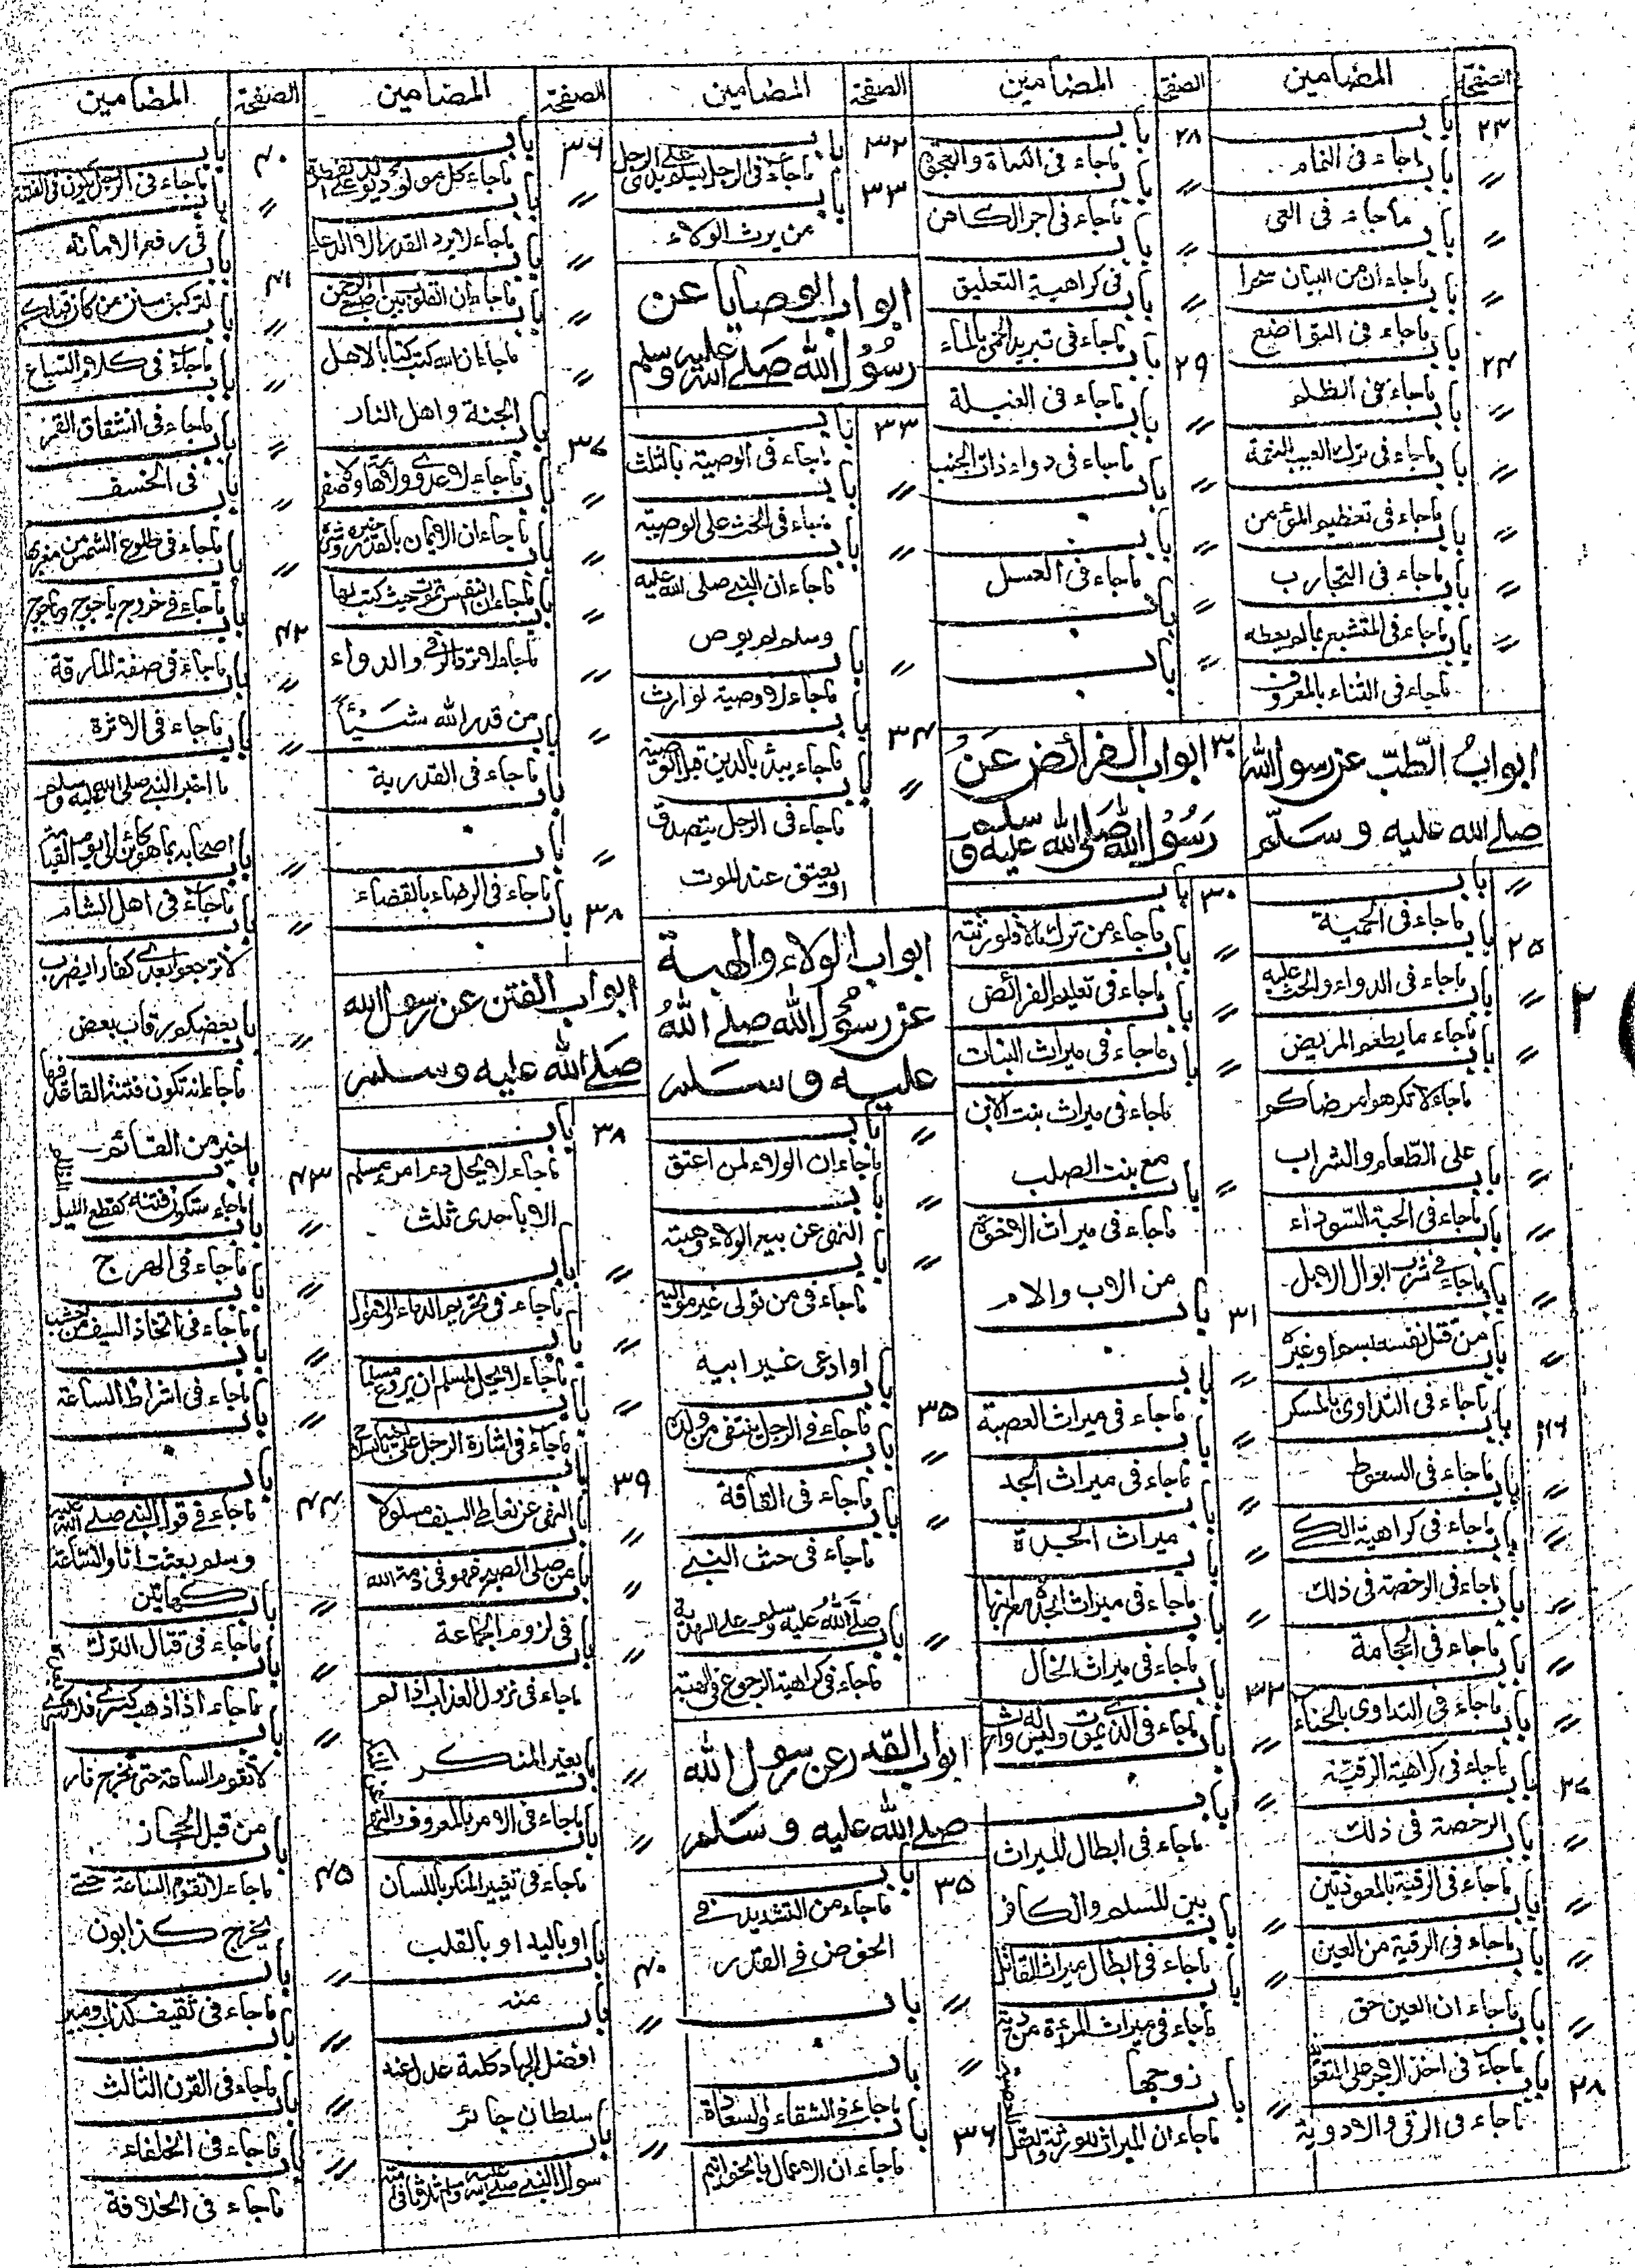 الصفحة المضامين
۲۳ باب
ماجاء فی النمام
〃 باب
ماجاء فی العی
〃 باب
ماجاء ان من البیان سحرا
〃 باب
ماجاء فی التواضع
۲۴ باب
ماجاء فی الظلم
〃 باب
ماجاء فی ترک العیب للنعمة
〃 باب
ماجاء فی تعظیم المؤمن
〃 باب
ماجاء فی التجارب
〃 باب
ماجاء فی المتشبع بمالم یعطه
〃 باب
ماجاء فی الثناء بالمعروف
ابوابُ الطّبّ عن رسول الله
صلے الله علیه وسَلّم
〃 باب
ماجاء فی الحمیة
۲۵ باب
ماجاء فی الدواء والحث علیه
〃 باب
ماجاء ما یطعم المریض
〃 باب
ماجاء لا تکرهوا مرضاکم
علی الطّعام والشراب
〃 باب
ماجاء فی الحبة السّوداء
〃 باب
ماجاء فی شرب ابوال الابل
〃 باب
من قتل نفسه بسم او غیره
〃 باب
ماجاء فی التداوی بالمسکر
۲۶ باب
ماجاء فی السعوط
〃 باب
ماجاء فی کراهیة الکے
〃 باب
ماجاء فی الرخصة فی ذلک
〃 باب
ماجاء فی الحجامة
〃 باب
ماجاء فی التداوی بالحناء
〃 باب
ماجاء فی کراهیة الرقیة
۲۷ باب
الرخصة فی ذلک
〃 باب
ماجاء فی الرقیة بالمعوذتین
〃 باب
ماجاء فی الرقیة من العین
〃 باب
ماجاء ان العین حق
〃 باب
ماجاء فی اخذ الاجر علی التعویذ
۲۸ باب
ماجاء فی الرقی والادویة
الصفحة المضامین
۲۸ باب
ماجاء فی الکماة والعجوة
〃 باب
ماجاء فی اجر الکاهن
〃 باب
فی کراهیة التعلیق
〃 باب
ماجاء فی تبرید الحمی بالماء
۲۹ باب
ماجاء فی الغیلة
〃 باب
ماجاء فی دواء ذات الجنب
〃 باب
〃 باب
ماجاء فی العسل
〃 باب
〃 باب
۳۰ ابواب الفرائض عَنْ
رَسُوْل اللهِ صَلی الله علیه وسلم
۳۰ باب
ماجاء من ترک مالا فلورثته
〃 باب
ماجاء فی تعلیم الفرائض
〃 باب
ماجاء فی میراث البنات
〃 باب
ماجاء فی میراث بنت الابن
مع بنت الصلب
〃 باب
ماجاء فی میراث الاخوة
من الاب والام
۳۱ باب
〃 باب
ماجاء فی میراث العصبة
〃 باب
ماجاء فی میراث الجد
〃 باب
میراث الجدة
〃 باب
ماجاء فی میراث الجدة مع ابنها
〃 باب
ماجاء فی میراث الخال
۳۲ باب
ماجاء فی الذی یموت ولیس له وارث
〃 باب
〃 باب
ماجاء فی ابطال المیراث
بین المسلم والکافر
〃 باب
ماجاء فی ابطال میراث القاتل
〃 باب
ماجاء فی میراث المرءة من دیة
زوجها
〃 باب
ماجاء ان المیراث للورثة والعقل
الصفحة المضامین
۳۲ باب
ماجاء فی الرجل یسلم علی یدی الرجل
۳۳ باب
من یرث الولاء
ابواب الوصایا عن
رسُوْل الله صَلے الله علیه وسلم
۳۳ باب
ماجاء فی الوصیة بالثلث
〃 باب
ماجاء فی الحث علی الوصیة
〃 باب
ماجاء ان النبی صلی الله علیه
وسلم لم یوص
〃 باب
ماجاء لا وصیة لوارث
۳۴ باب
ماجاء یبدأ بالدین قبل الوصیة
〃 باب
ماجاء فی الرجل یتصدق
او یعتق عند الموت
ابواب الولاء والهبة
عن رسُوْل الله صلے اللهُ
علیه وسَلم
〃 باب
ماجاء ان الولاء لمن اعتق
〃 باب
النهی عن بیع الولاء وهبته
〃 باب
ماجاء فی من تولی غیر موالیه
او ادعی غیر ابیه
۳۵ باب
ماجاء فی الرجل ینتفی من ولده
〃 باب
ماجاء فی القافة
〃 باب
ماجاء فی حث النبے
صَلے اللهُ علیه وسلم علی الهدیة
〃 باب
ماجاء فی کراهیة الرجوع فی الهبة
ابواب القدر عن رسول الله
صلے الله علیه وسَلم
۳۵ باب
ماجاء من التشدید فی
الخوض فی القدر
〃 باب
〃 باب
ماجاء فی الشقاء والسعادة
۳۶ باب
ماجاء ان الاعمال بالخواتیم
الصفحة المضامین
۳۶ باب
ماجاء کل مولود یولد علی الفطرة
〃 باب
ماجاء لا یرد القدر الا الدعاء
〃 باب
ماجاء ان القلوب بین اصبعی الرحمن
〃 باب
ماجاء ان الله کتب کتابا لاهل
الجنة واهل النار
۳۷ باب
ماجاء لا عدوی ولا هامة ولا صفر
〃 باب
ماجاء ان الایمان بالقدر خیره وشره
〃 باب
ماجاء ان النفس تموت حیث کتب لها
〃 باب
ماجاء لا ترد الرقی والدواء
من قدر الله شَیْئاً
〃 باب
ماجاء فی القدریة
باب
〃 باب
ماجاء فی الرضاء بالقضاء
۳۸ باب
ابواب الفتن عن رسول الله
صَلے الله علیه وسلم
۳۸ باب
ماجاء لا یحل دم امرء مسلم
الا باحدی ثلث
〃 باب
ماجاء فی تحریم الدماء والاموال
〃 باب
ماجاء لا یحل لمسلم ان یروع مسلما
〃 باب
ماجاء فی اشارة الرجل علی اخیه بالسلاح
۳۹ باب
النهی عن تعاطی السیف مسلولا
〃 باب
من صلی الصبح فهو فی ذمة الله
〃 باب
فی لزوم الجماعة
〃 باب
ماجاء فی نزول العذاب اذا لم
یغیر المنکر
〃 باب
ماجاء فی الامر بالمعروف والنهی
عن المنکر
〃 باب
ماجاء فی تغییر المنکر باللسان
او بالید او بالقلب
۴۰ باب
منه
〃 باب
افضل الجهاد کلمة عدل عند
سلطان جائر
〃 باب
سوال النبی صلے الله علیه وسلم ثلاثا فی امته
الصفحة المضامین
۴۰ باب
ماجاء فی الرجل یکون فی الفتنة
〃 باب
فی رفع الامانة
۴۱ باب
لترکبن سنن من کان قبلکم
〃 باب
ماجاء فی کلام السباع
〃 باب
ماجاء فی انشقاق القمر
〃 باب
فی الخسف
〃 باب
ماجاء فی طلوع الشمس من مغربها
〃 باب
ماجاء فی خروج یاجوج وماجوج
۴۲ باب
ماجاء فی صفة المارقة
〃 باب
ماجاء فی الاثرة
〃 باب
ما اخبر النبی صلی الله علیه وسلم
اصحابه بما هو کائن الی یوم القیامة
〃 باب
ماجاء فی اهل الشام
〃 باب
لا ترجعوا بعدی کفارا یضرب
بعضکم رقاب بعض
〃 باب
ماجاء انه تکون فتنة القاعد فیها
خیر من القائم
۴۳ باب
ماجاء ستکون فتنة کقطع اللیل
المظلم
〃 باب
ماجاء فی الهرج
〃 باب
ماجاء فی اتخاذ السیف من خشب
〃 باب
ماجاء فی اشراط الساعة
〃 باب
۴۴ باب
ماجاء فی قول النبی صلے الله علیه
وسلم بعثت انا والساعة
کهاتین
〃 باب
ماجاء فی قتال الترک
〃 باب
ماجاء اذا ذهب کسری فلا کسری
بعده
〃 باب
لا تقوم الساعة حتی تخرج نار
من قبل الحجاز
۴۵ باب
ماجاء لا تقوم الساعة حتے
یخرج کذابون
〃 باب
ماجاء فی ثقیف کذاب ومبیر
〃 باب
ماجاء فی القرن الثالث
〃 باب
ماجاء فی الخلفاء
〃 باب
ماجاء فی الخلافة
۲